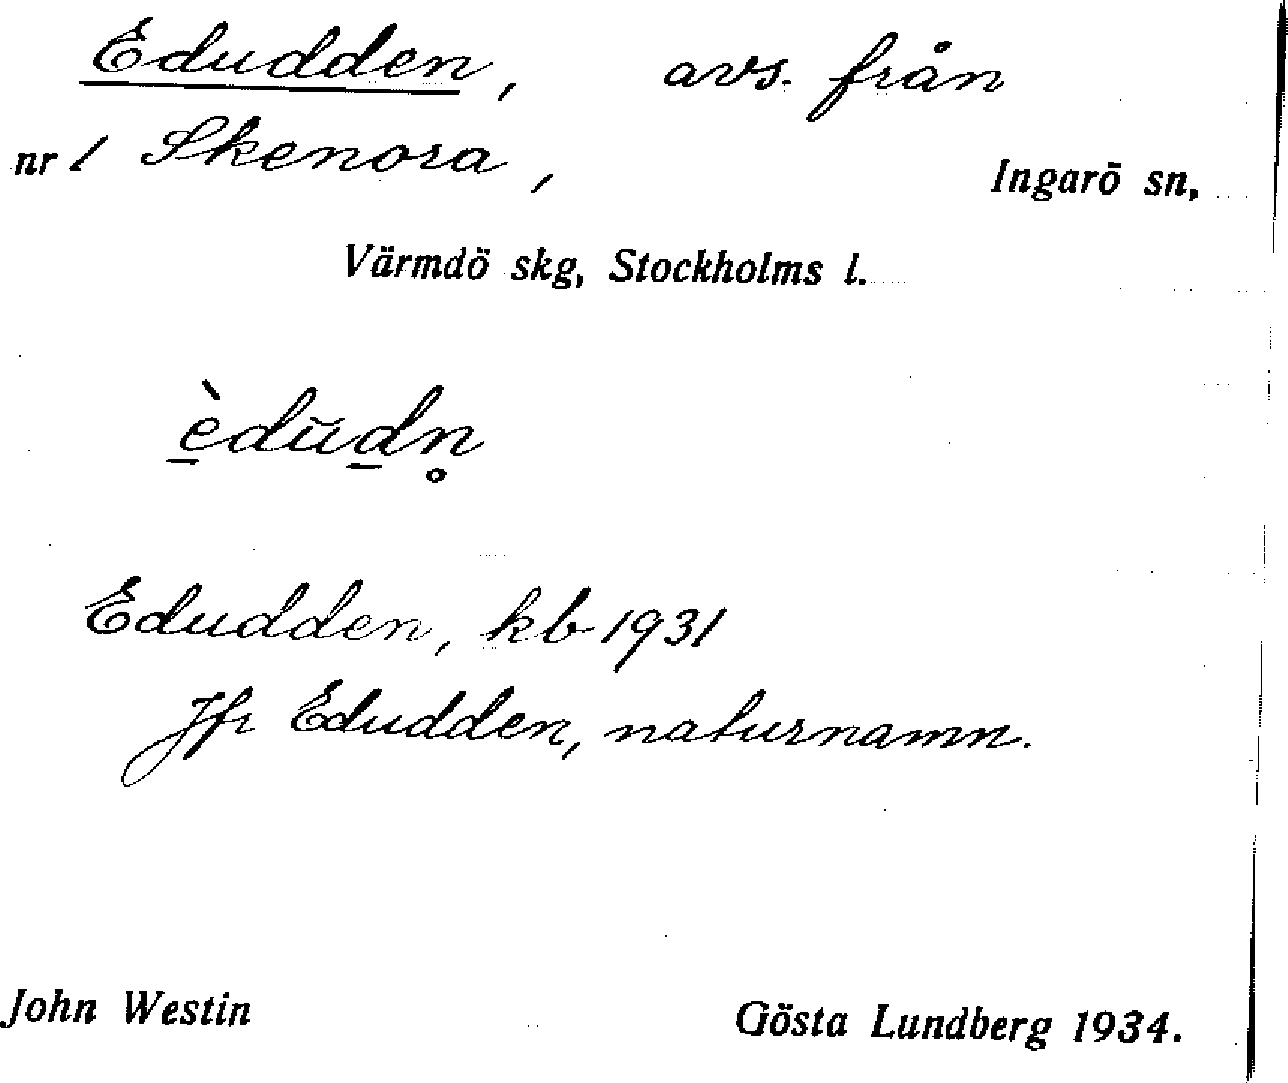 Edudden, avs. från
nr 1 Skenora, Ingarö sn,
Värmdö skg, Stockholms l.
è̱dŭḏn̥
Edudden, kb 1931
Jfr Edudden, naturnamn.
John Westin Gösta Lundberg 1934.